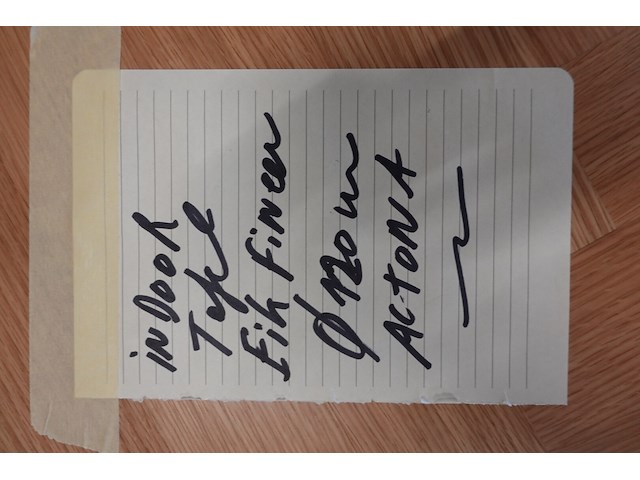 inDOOR
Tafel
Eik Fineer
Ø 120 cm
ACTONA